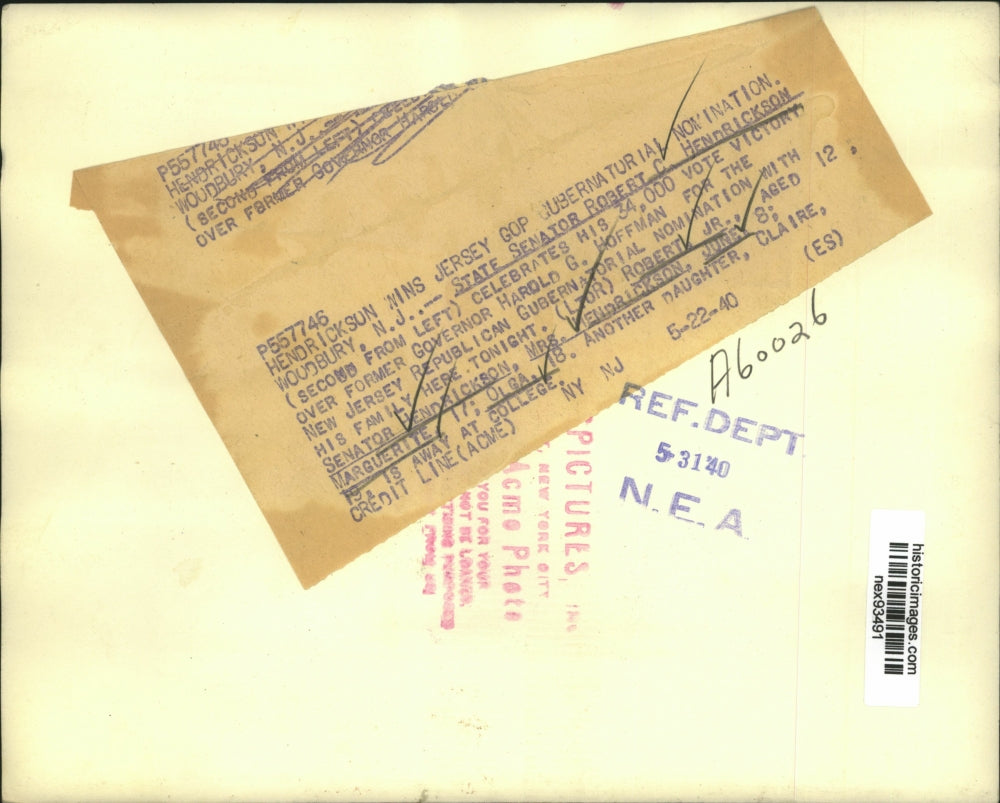 P557746
HENDRICKSON
WOODBURY, N.J.
(SECOND FROM LEFT)
OVER FORMER GOVERNOR HAROLD
P557746
HENDRICKSON WINS JERSEY GOP GUBERNATORIAL NOMINATION.
WOODBURY, N.J..-- STATE SENATOR ROBERT C. HENDRICKSON
(SECOND FROM LEFT) CELEBRATES HIS 34,000 VOTE VICTORY
OVER FORMER GOVERNOR HAROLD G. HOFFMAN FOR THE
NEW JERSEY REPUBLICAN GUBERNATORIAL NOMINATION WITH
HIS FAMILY HERE TONIGHT. (LTOR) ROBERT JR., AGED 12.
SENATOR HENDRICKSON, MRS. HENDRICKSON, 8,
MARGUERITE, 17; OLGA, 18. ANOTHER DAUGHTER, CLAIRE,
19, IS AWAY AT COLLEGE.
CREDIT LINE(ACME) NY NJ 5-22-40 (ES)
A60026
REF. DEPT
5-31 40
N.E.A
PICTURES, INC
NEW YORK CITY
Acme Photo
YOU FOR YOUR
NOT BE LOANED
PURPOSES
historicimages.com
nex93491